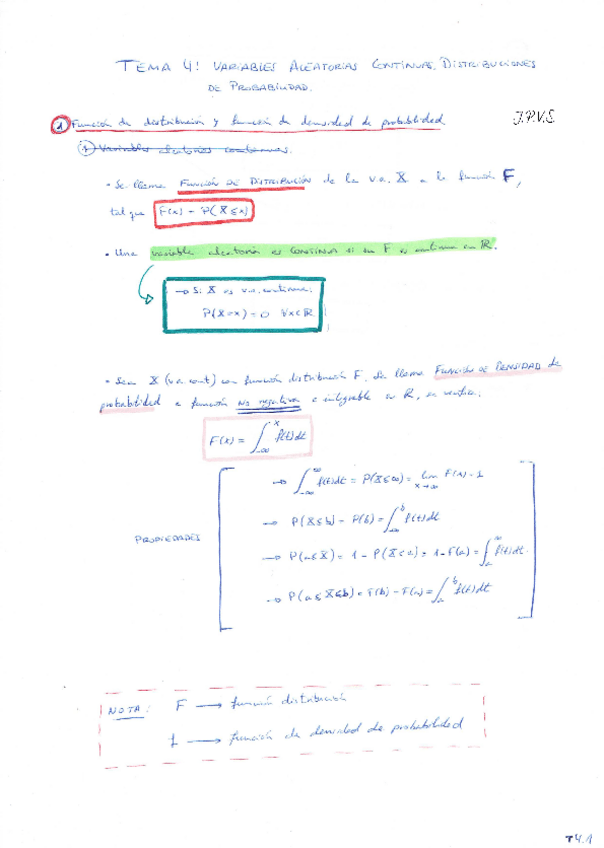 TEMA 4: VARIABLES ALEATORIAS CONTINUAS. DISTRIBUCIONES
DE PROBABILIDAD.
① Función de distribución y función de densidad de probabilidad
J.P.V.S.
① Variables aleatorias continuas.
• Se llama FUNCIÓN DE DISTRIBUCIÓN de la v.a. X a la función F,
tal que F(x) = P(X ≤ x)
• Una variable aleatoria es CONTINUA si su F es continua en ℝ.
→ Si X es v.a. continua.
P(X=x) = 0 ∀x∈ℝ
• Sea X (v.a cont) con función distribución F. Se llama FUNCIÓN DE DENSIDAD de
probabilidad a función no negativa e integrable en R, se verifica:
F(x) = ∫_{-∞}^{x} f(t)dt
→ ∫_{-∞}^{∞} f(t)dt = P(X≤∞) = lim_{x→∞} F(x) = 1
→ P(X≤b) = P(b) = ∫_{-∞}^{b} f(t)dt
PROPIEDADES
→ P(a≤X) = 1 - P(X≤a) = 1 - F(a) = ∫_{a}^{∞} f(t)dt.
→ P(a≤X≤b) = F(b) - F(a) = ∫_{a}^{b} f(t)dt
NOTA: F → función distribución
f → función de densidad de probabilidad
T4.1